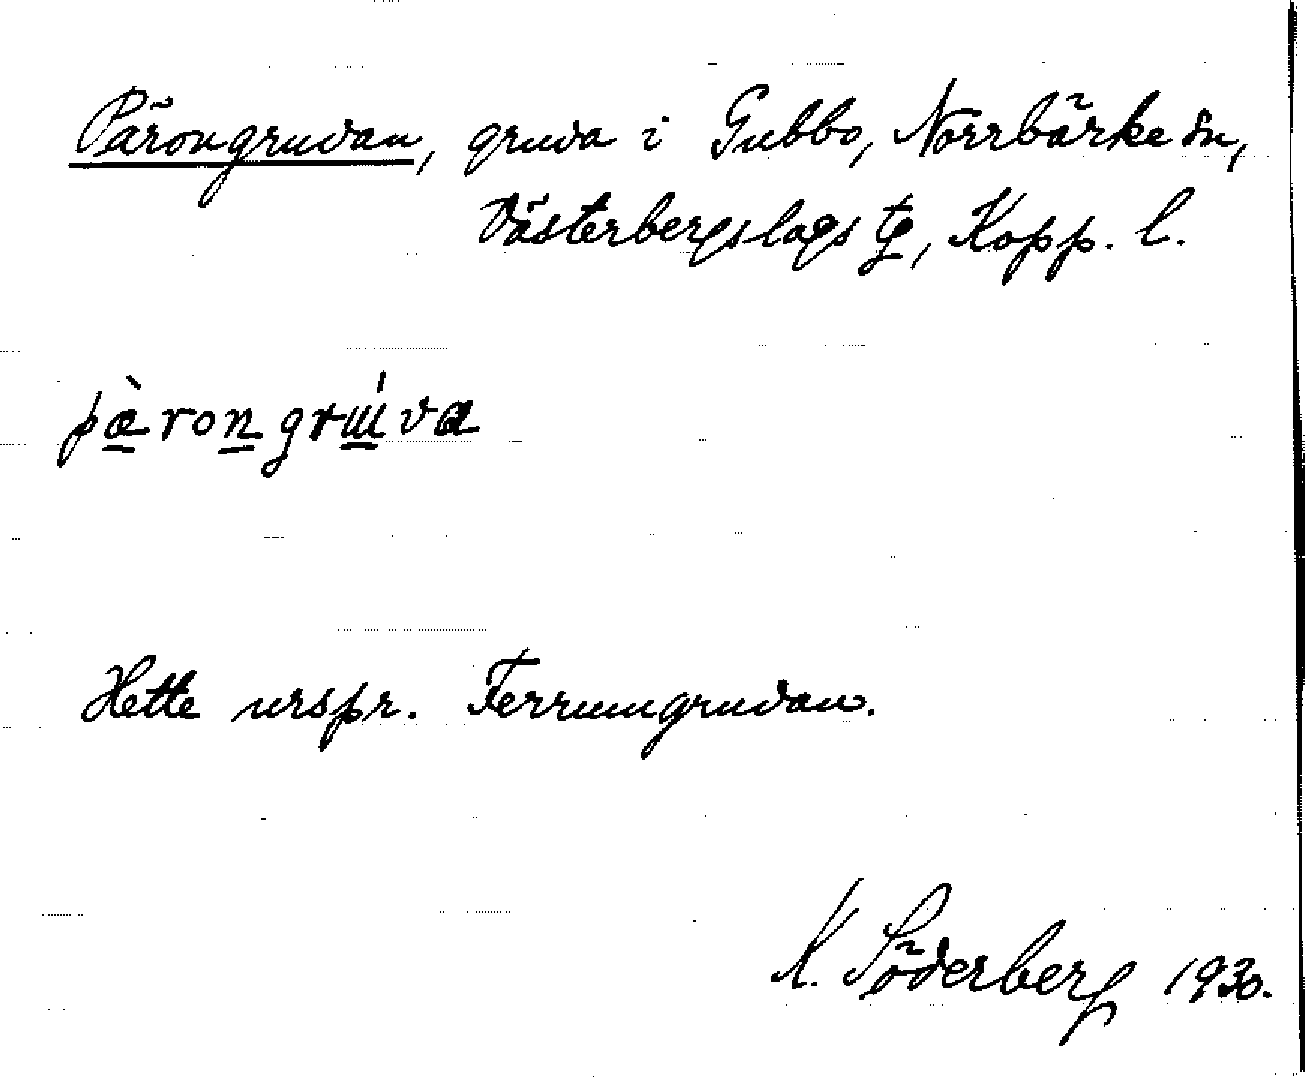 Pärongruvan, gruva i Gubbo, Norrbärke sn,
Västerbergslags tg, Kopp. l.
pæ̀rongrɯ́va
Hette urspr. Ferrumgruvan.
K. Söderberg 1930.